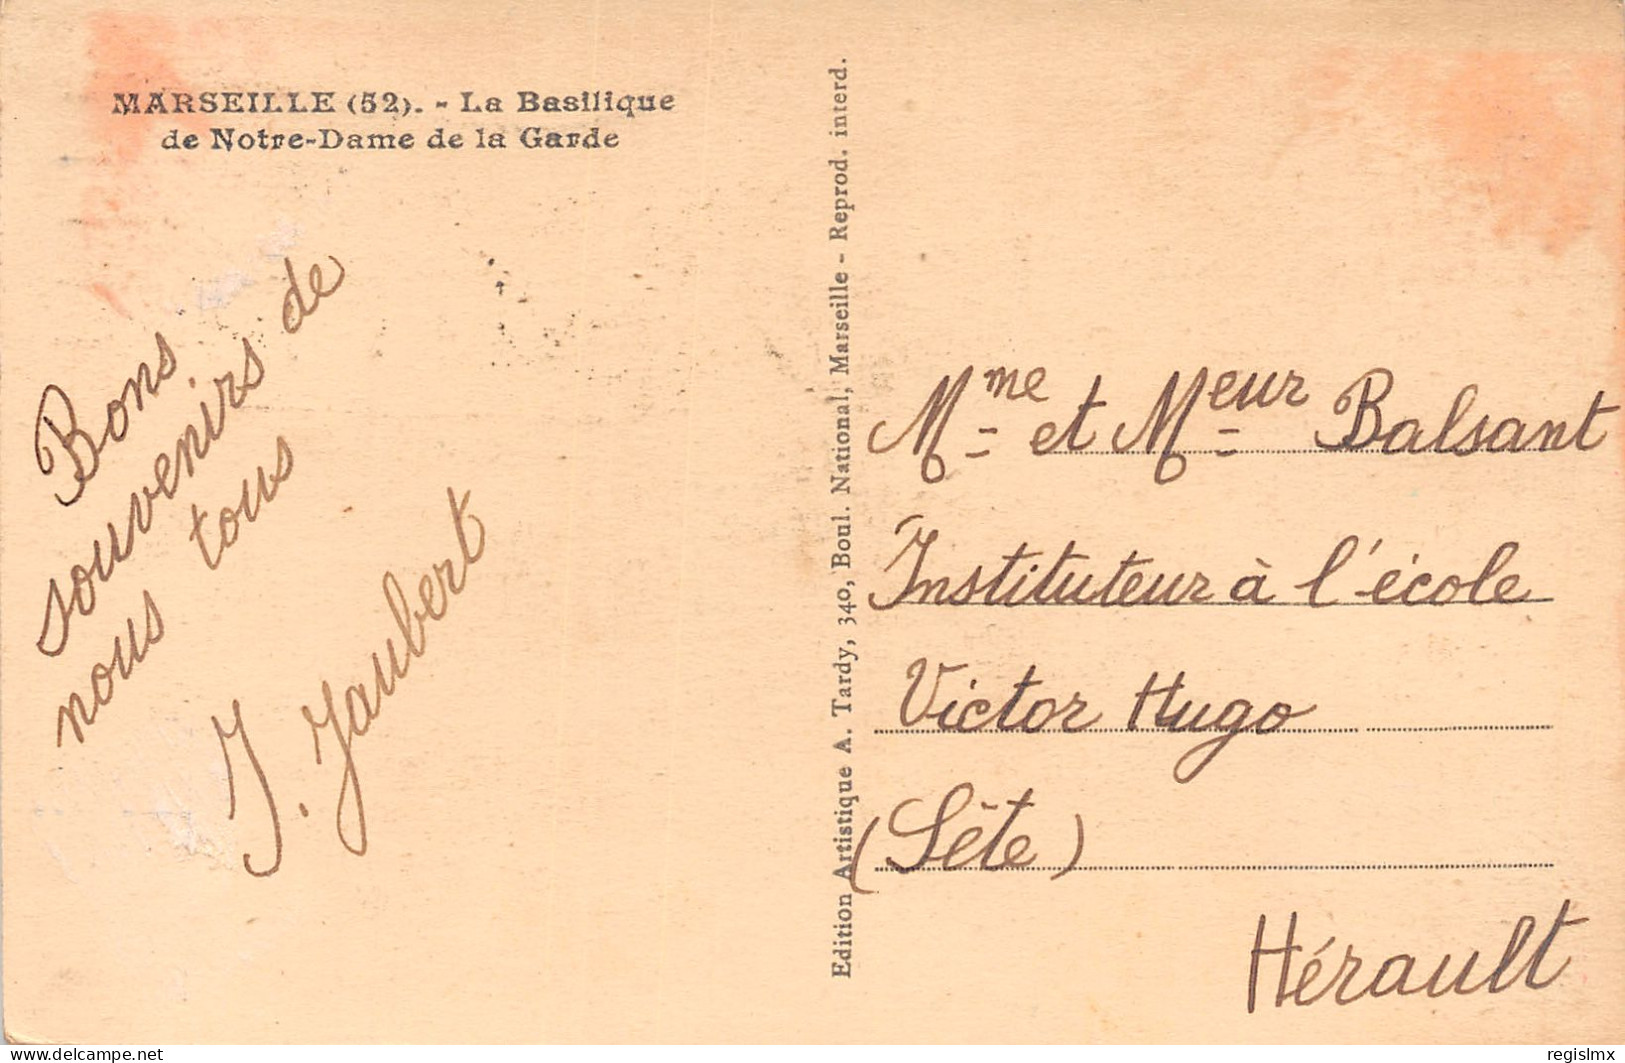 MARSEILLE (52). - La Basilique
de Notre-Dame de la Garde
Bons
souvenirs de
nous tous
J. Jaubert
Edition Artistique A. Tardy, 340, Boul. National, Marseille - Reprod. interd.
Mme et Meur Balsant
Instituteur à l'école
Victor Hugo
(Sète)
Hérault
delcampe.net
regislmx